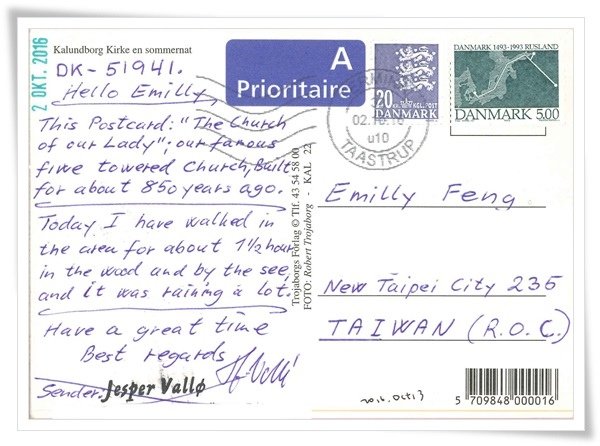 2 OKT. 2016
Kalundborg Kirke en sommernat
DK-51941.
Hello Emilly,
This Postcard: "The Church
of our Lady"; our famous
five towered Church, Built
for about 850 years ago.
Today I have walked in
the area for about 1½ hour
in the wood and by the see,
and it was raining a lot.
Have a great time
Best regards
Sender: Jesper Vallø
Trojaborgs Forlag © Tlf. 43 54 58 00
FOTO: Robert Trojaborg - KAL 22
A
Prioritaire
20
KGL. POST
DANMARK
DANMARK 1493-1993 RUSLAND
DANMARK 5.00
02.10.16
u10
TAASTRUP
Emilly Feng
New Taipei City 235
TAIWAN (R.O.C.)
2016.Oct13
5 709848 000016